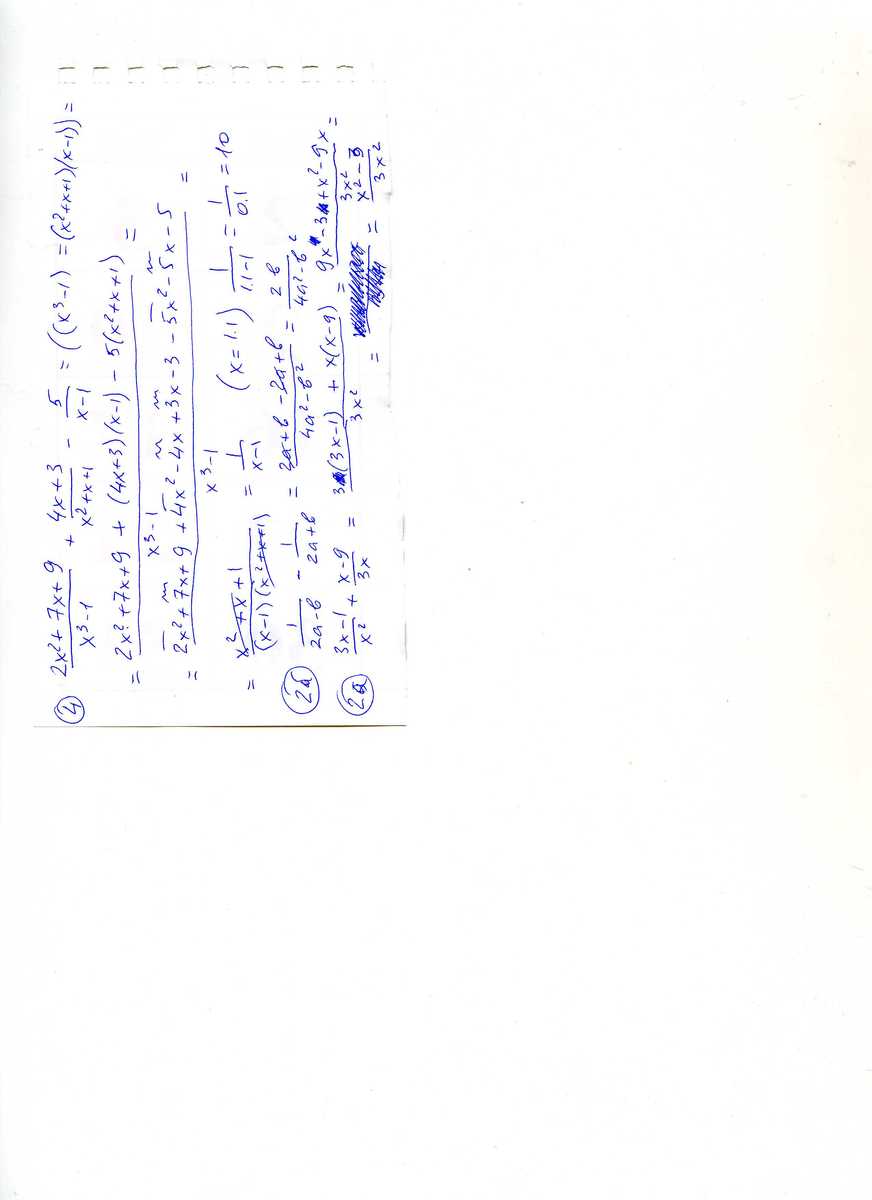 ④ (2x²+7x+9)/(x³-1) + (4x+3)/(x²+x+1) - 5/(x-1) = ((x³-1) = (x²+x+1)(x-1)) =
= (2x²+7x+9 + (4x+3)(x-1) - 5(x²+x+1))/(x³-1) =
= (2x²+7x+9+4x²-4x+3x-3-5x²-5x-5)/(x³-1) =
= (x²+x+1)/((x-1)(x²+x+1)) = 1/(x-1) (x=1.1) 1/(1.1-1) = 1/0.1 = 10
2б 1/(2a-b) - 1/(2a+b) = (2a+b-2a+b)/(4a²-b²) = 2b/(4a²-b²)
2a (3x-1)/x² + (x-9)/3x = (3(3x-1) + x(x-9))/3x² = (9x-3+x²-9x)/3x² =
= = (x²-3)/3x²